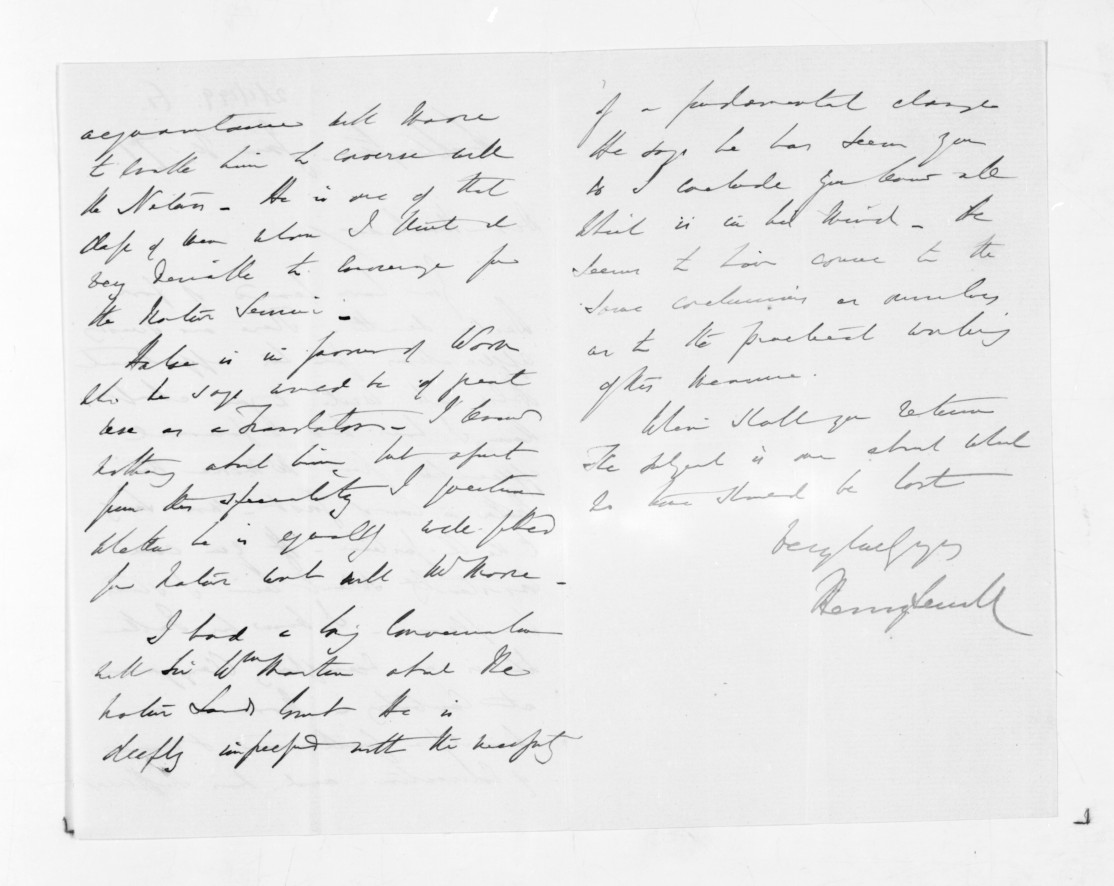 acquaintance with Maori
to enable him to converse with
the Natives - He is one of that
class of men whom I think it
very desirable to encourage for
the Native Service -
Halse is in favor of Woon
who he says would be of great
use as a Translator - I know
nothing about him, but apart
from this speciality I question
whether he is equally well fitted
for Native work with Mr Moore -
I had a long Conversation
with Sir Wm Martin about the
Native Lands Court He is
deeply impressed with the necessity
of a fundamental change
He says he has seen you
so I conclude you know all
which is in his Mind - He
seems to have come to the
same conclusions as ourselves
as to the practical working
of this measure.
When shall you return
The subject is one about which
no time should be lost
Very truly yrs
Henry Sewell